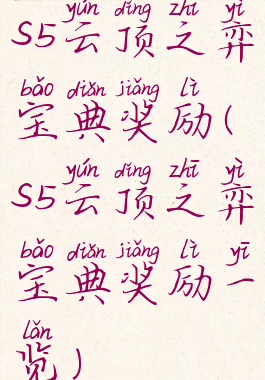 yún dǐng zhī yì
S5云顶之弈
bǎo diǎn jiǎng lì
宝典奖励(
yún dǐng zhī yì
S5云顶之弈
bǎo diǎn jiǎng lì yī
宝典奖励一
lǎn
览)